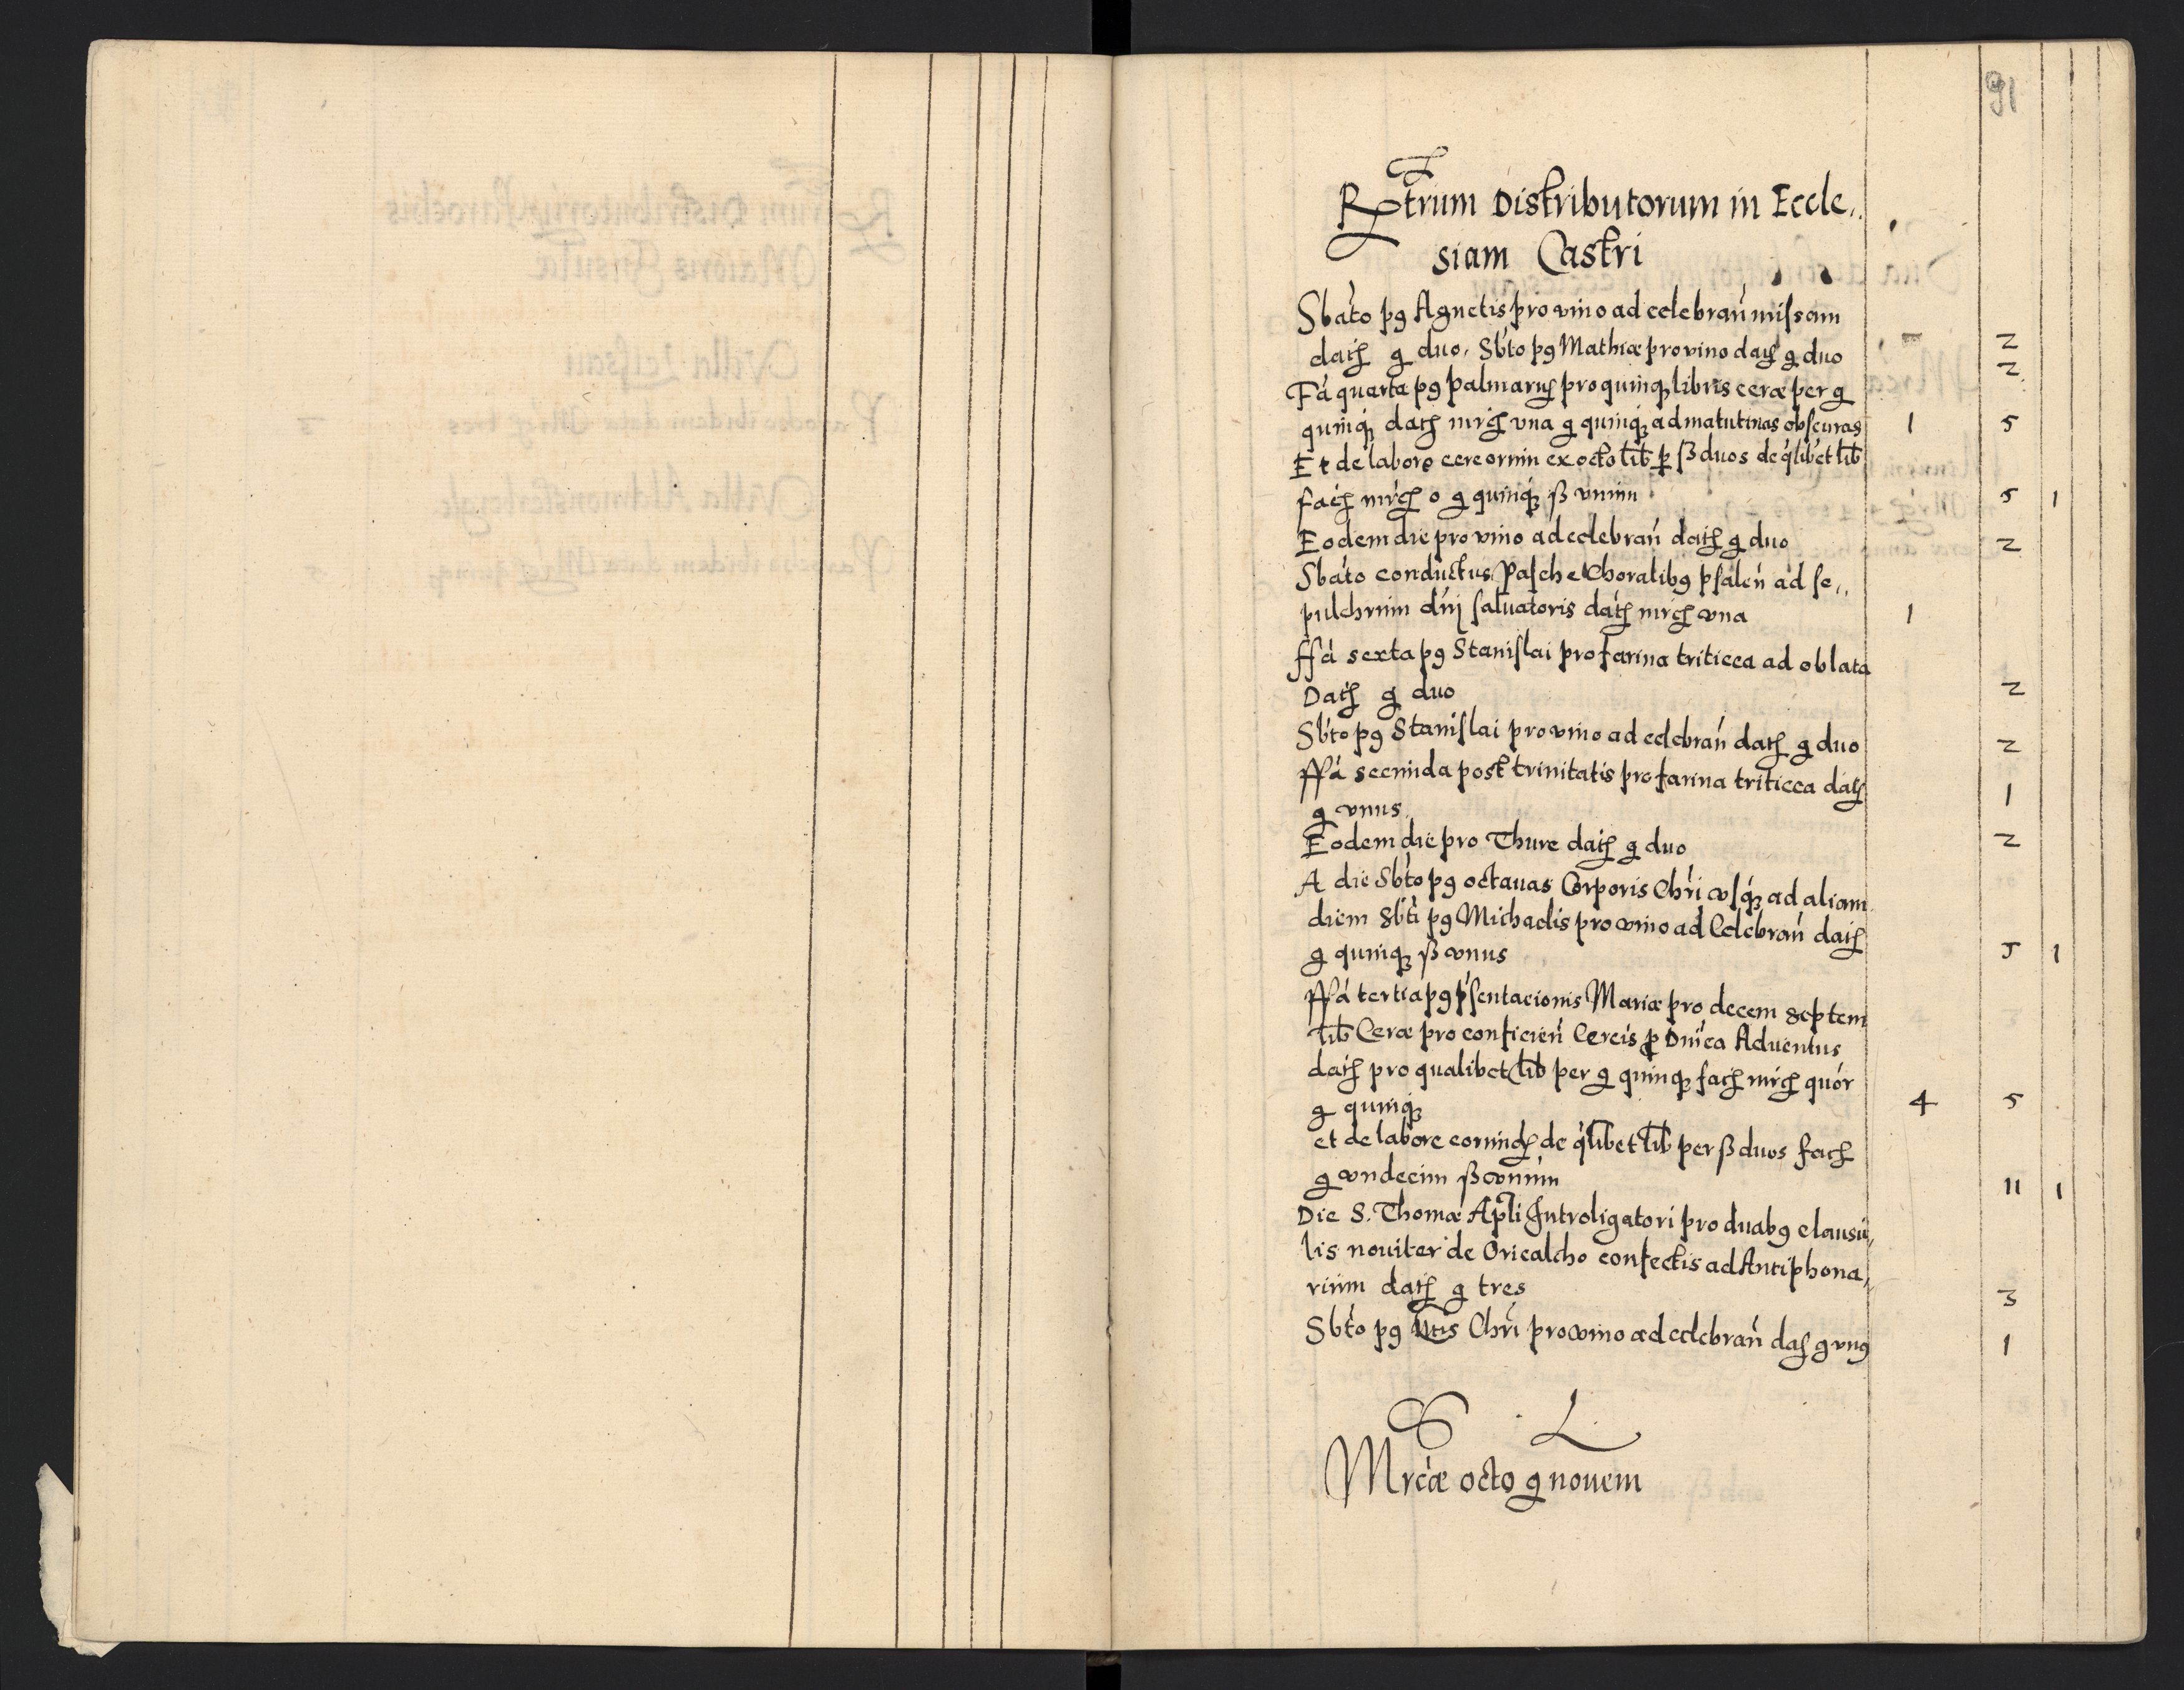 91
Rtrum Distributorum in Eccle„
siam Castri
Sbáto pꝯ Agnetis pro vino ad celebrań missam
datꝭ g duo. Sbto pꝯ Mathiæ pro vino datꝭ g duo 2 2
Fá quarta pꝯ Palmarꝝ pro quinqꝫ libris ceræ per g
quinqꝫ datꝭ mrcꝭ vna g quinqꝫ ad matutinas obscuras 1 5
Et de labore cereorum ex octo lib ꝑ ß duos de qlibet lib
facꝭ mrcꝭ o g quinqꝫ ß vnum 5 1
Eodem die pro vino ad celebrań datꝭ g duo 2
Sbáto conductus Pasche Choralibꝯ psaleń ad se„
pulchrum dńj saluatoris datꝭ mrcꝭ vna 1
ffá sexta pꝯ Stanislai pro farina triticea ad oblata
Datꝭ g duo 2
Sbto pꝯ Stanislai pro vino ad celebrań datꝭ g duo 2
ffá secunda post trinitatis pro farina triticea datꝭ
g vnus 1
Eodem die pro Thure datꝭ g duo 2
A die Sbto pꝯ octauas Corporis Chri vsqꝫ ad aliam
diem Sbti pꝯ Michaelis pro vino ad Celebrań datꝭ
g quinqꝫ ß vnus 5 1
ffá tertia pꝯ pśentacionis Mariæ pro decem septem
lib Ceræ pro conficień Cereis ꝓ Dnica Aduentus
datꝭ pro qualibet lib per g quinqꝫ facꝭ mrcꝭ quór
g quinqꝫ 4 5
et de labore eorundꝫ de qlibet lib per ß duos facꝭ
g vndecim ß vnum 11 1
Die S. Thomæ Apli Introligatori pro duabꝯ clausu„
lis nouiter de Oricalcho confectis ad Antiphona„
rium datꝭ g tres 3
Sbto pꝯ Ntis Chri pro vino ad celebrań datꝭ g vnꝯ 1
S L
Mrcæ octo g nouem